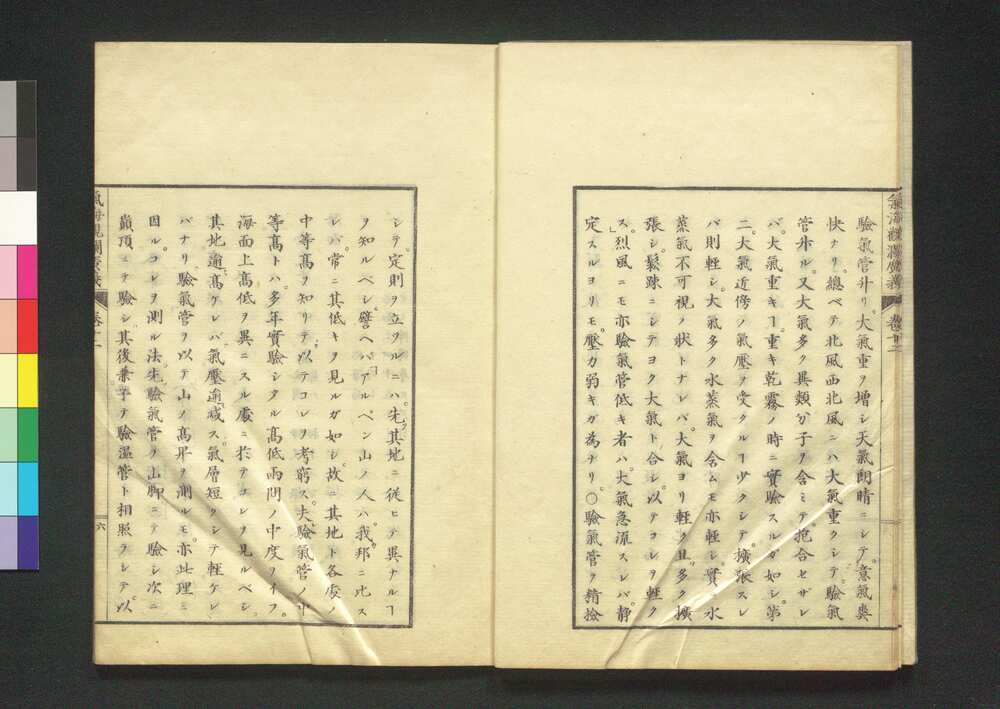 驗氣管升リ。大氣重ヲ増シ天氣朗晴ニシテ。意氣爽
快ナリ。總ベテ北風西北風ニハ大氣重クシテ。驗氣
管升ル。又大氣多ク異類分子ヲ含ミテ。抱合セザレ
バ。大氣重キヿ。重キ乾霧ノ時ニ實驗スルガ如シ。第
二大氣近傍ノ氣壓ヲ受クルヿ少クシテ。擴張スレ
バ則輕シ。大氣多ク水蒸氣ヲ含ムモ亦輕シ。實ニ水
蒸氣不可視ノ狀トナレバ。大氣ヨリ輕ク且ツ多ク擴
張シ。鬆踈ニシテヨク大氣ト合シ。以テコレヲ輕ク
ス。烈風ニモ亦驗氣管低キ者ハ。大氣急流スレバ靜
定スルヨリモ。壓力弱キガ為ナリ。〇驗氣管ヲ精撿
シテ。定則ヲ立ツルニハ。先其地ニ從ヒテ異ナルヿ
ヲ知ルベシ譬ヘバ「アルペン山ノ人ハ。我邦ニ比ス
レバ。常ニ其低キヲ見ルガ如シ。故ニ其地ト各處ノ
中等高ヲ知リテ。以テコレヲ考窮ス。大驗氣管ノ中
等高トハ。多年實驗シタル高低兩間ノ中度ヲイフ。
海面上高低ヲ異ニスル處ニ於テコレヲ見ルベシ。
其地逾高ケレバ氣壓逾減ス。氣層短クシテ輕ケレ
バナリ。驗氣管ヲ以テ山ノ高昇ヲ測ルモ。亦此理ニ
因ル。コレヲ測ル法先驗氣管ヲ山脚ニテ驗シ次ニ
巓頂ニテ驗シ。其後兼子テ驗温管ト相照ラシテ。以
氣海觀瀾廣義
卷十二
六